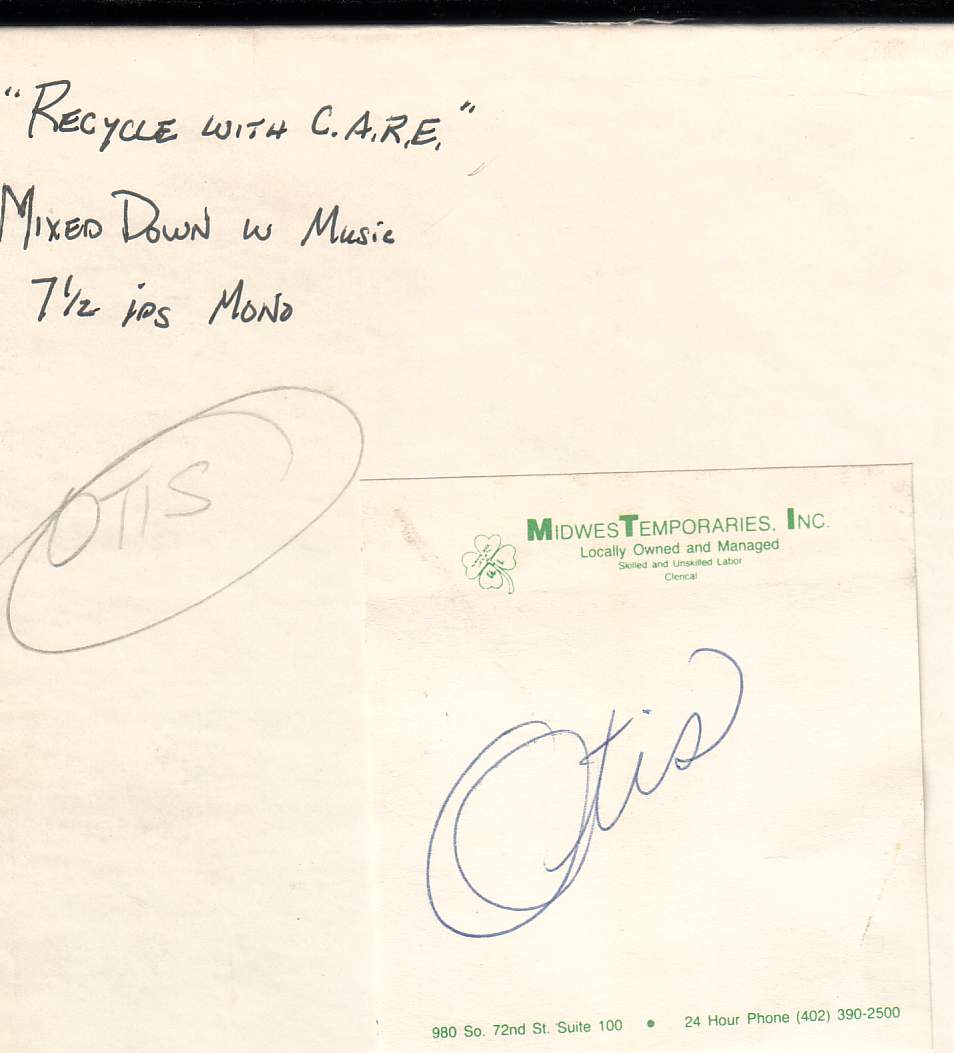 "RECYCLE WITH C.A.R.E."
MIXED DOWN W MUSIC
7½ ips MONO
OTIS
MIDWESTEMPORARIES, INC.
Locally Owned and Managed
Skilled and Unskilled Labor
Clerical
Otis
980 So. 72nd St. Suite 100 • 24 Hour Phone (402) 390-2500